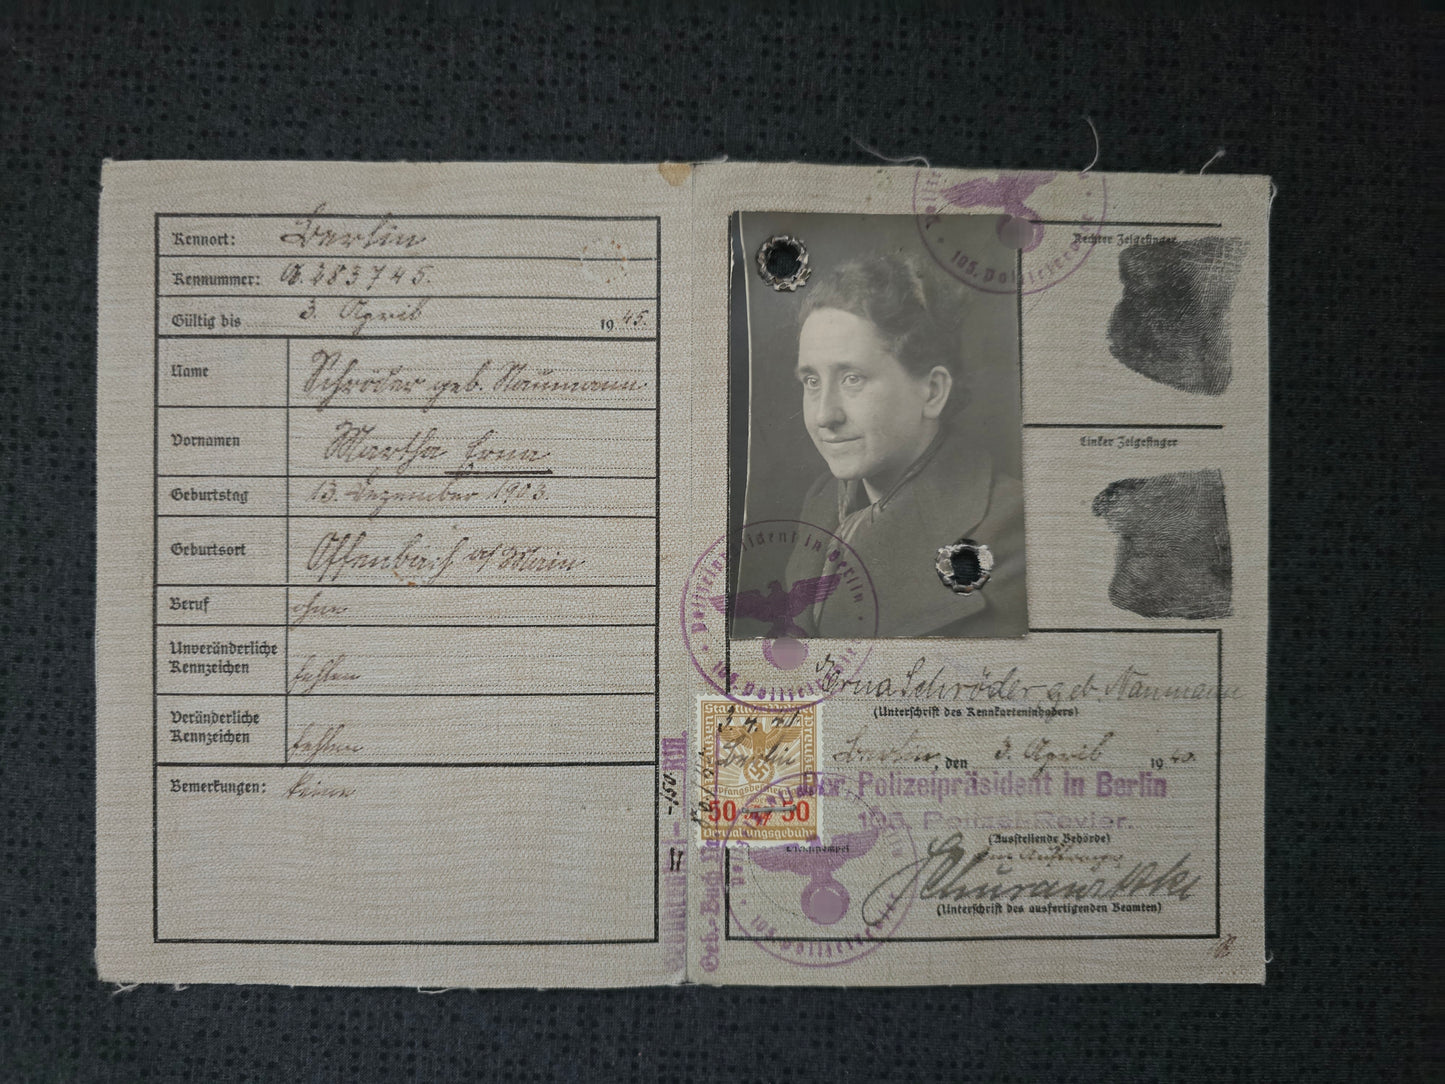 Kennort: Berlin
Kennummer: A. 283745.
Gültig bis 3. April 1945.
Name Schröder geb. Naumann
Vornamen Martha Erna
Geburtstag 13. Dezember 1903.
Geburtsort Offenbach a/Main
Beruf ohne
Unveränderliche
Kennzeichen fehlen
Veränderliche
Kennzeichen fehlen
Bemerkungen: keine
105. Polizeirevier
Rechter Zeigefinger
Linker Zeigefinger
Polizeipräsident in Berlin
105. Polizeirevier
Erna Schröder geb. Naumann
(Unterschrift des Kennkarteninhabers)
Berlin, den 3. April 1940.
3.4.
Berlin
50 50
Verwaltungsgebühr
Der Polizeipräsident in Berlin
105. Polizei-Revier.
(Ausstellende Behörde)
im Auftrage
(Unterschrift des ausfertigenden Beamten)
105. Polizeirevier
Geb.-Buch Nr.
RM.